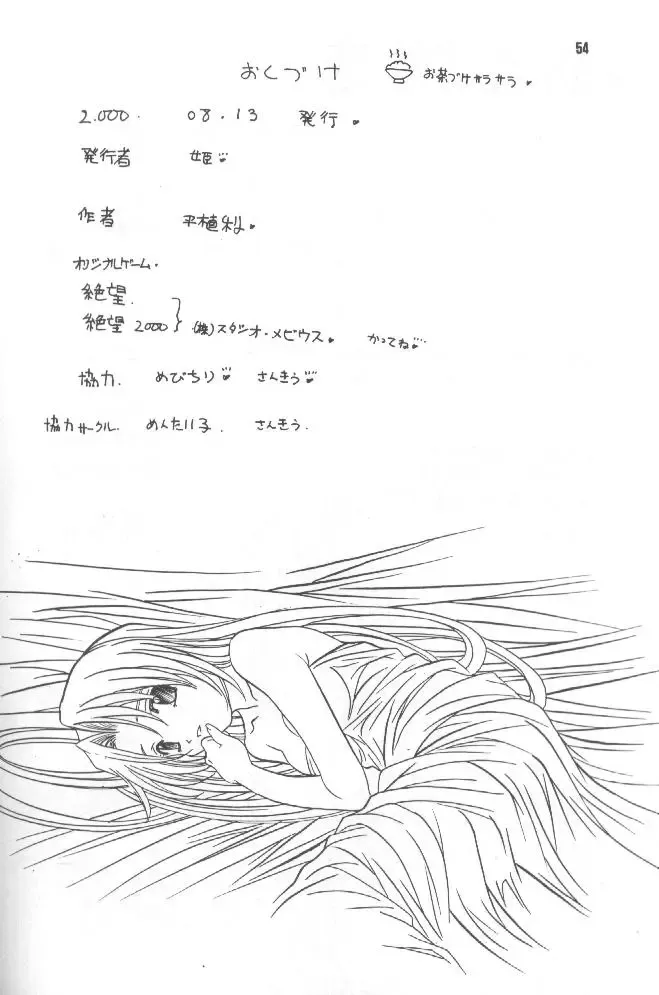 54
おくづけ お茶づけサラサラ。
2.000. 08.13 発行。
発行者 姫
作者 平植
オリジナルゲーム.
絶望.
絶望 2000 (株)スタジオ・メビウス。 かってね
協力. めびちり さんきう
協力サークル. めんたい子. さんきう.